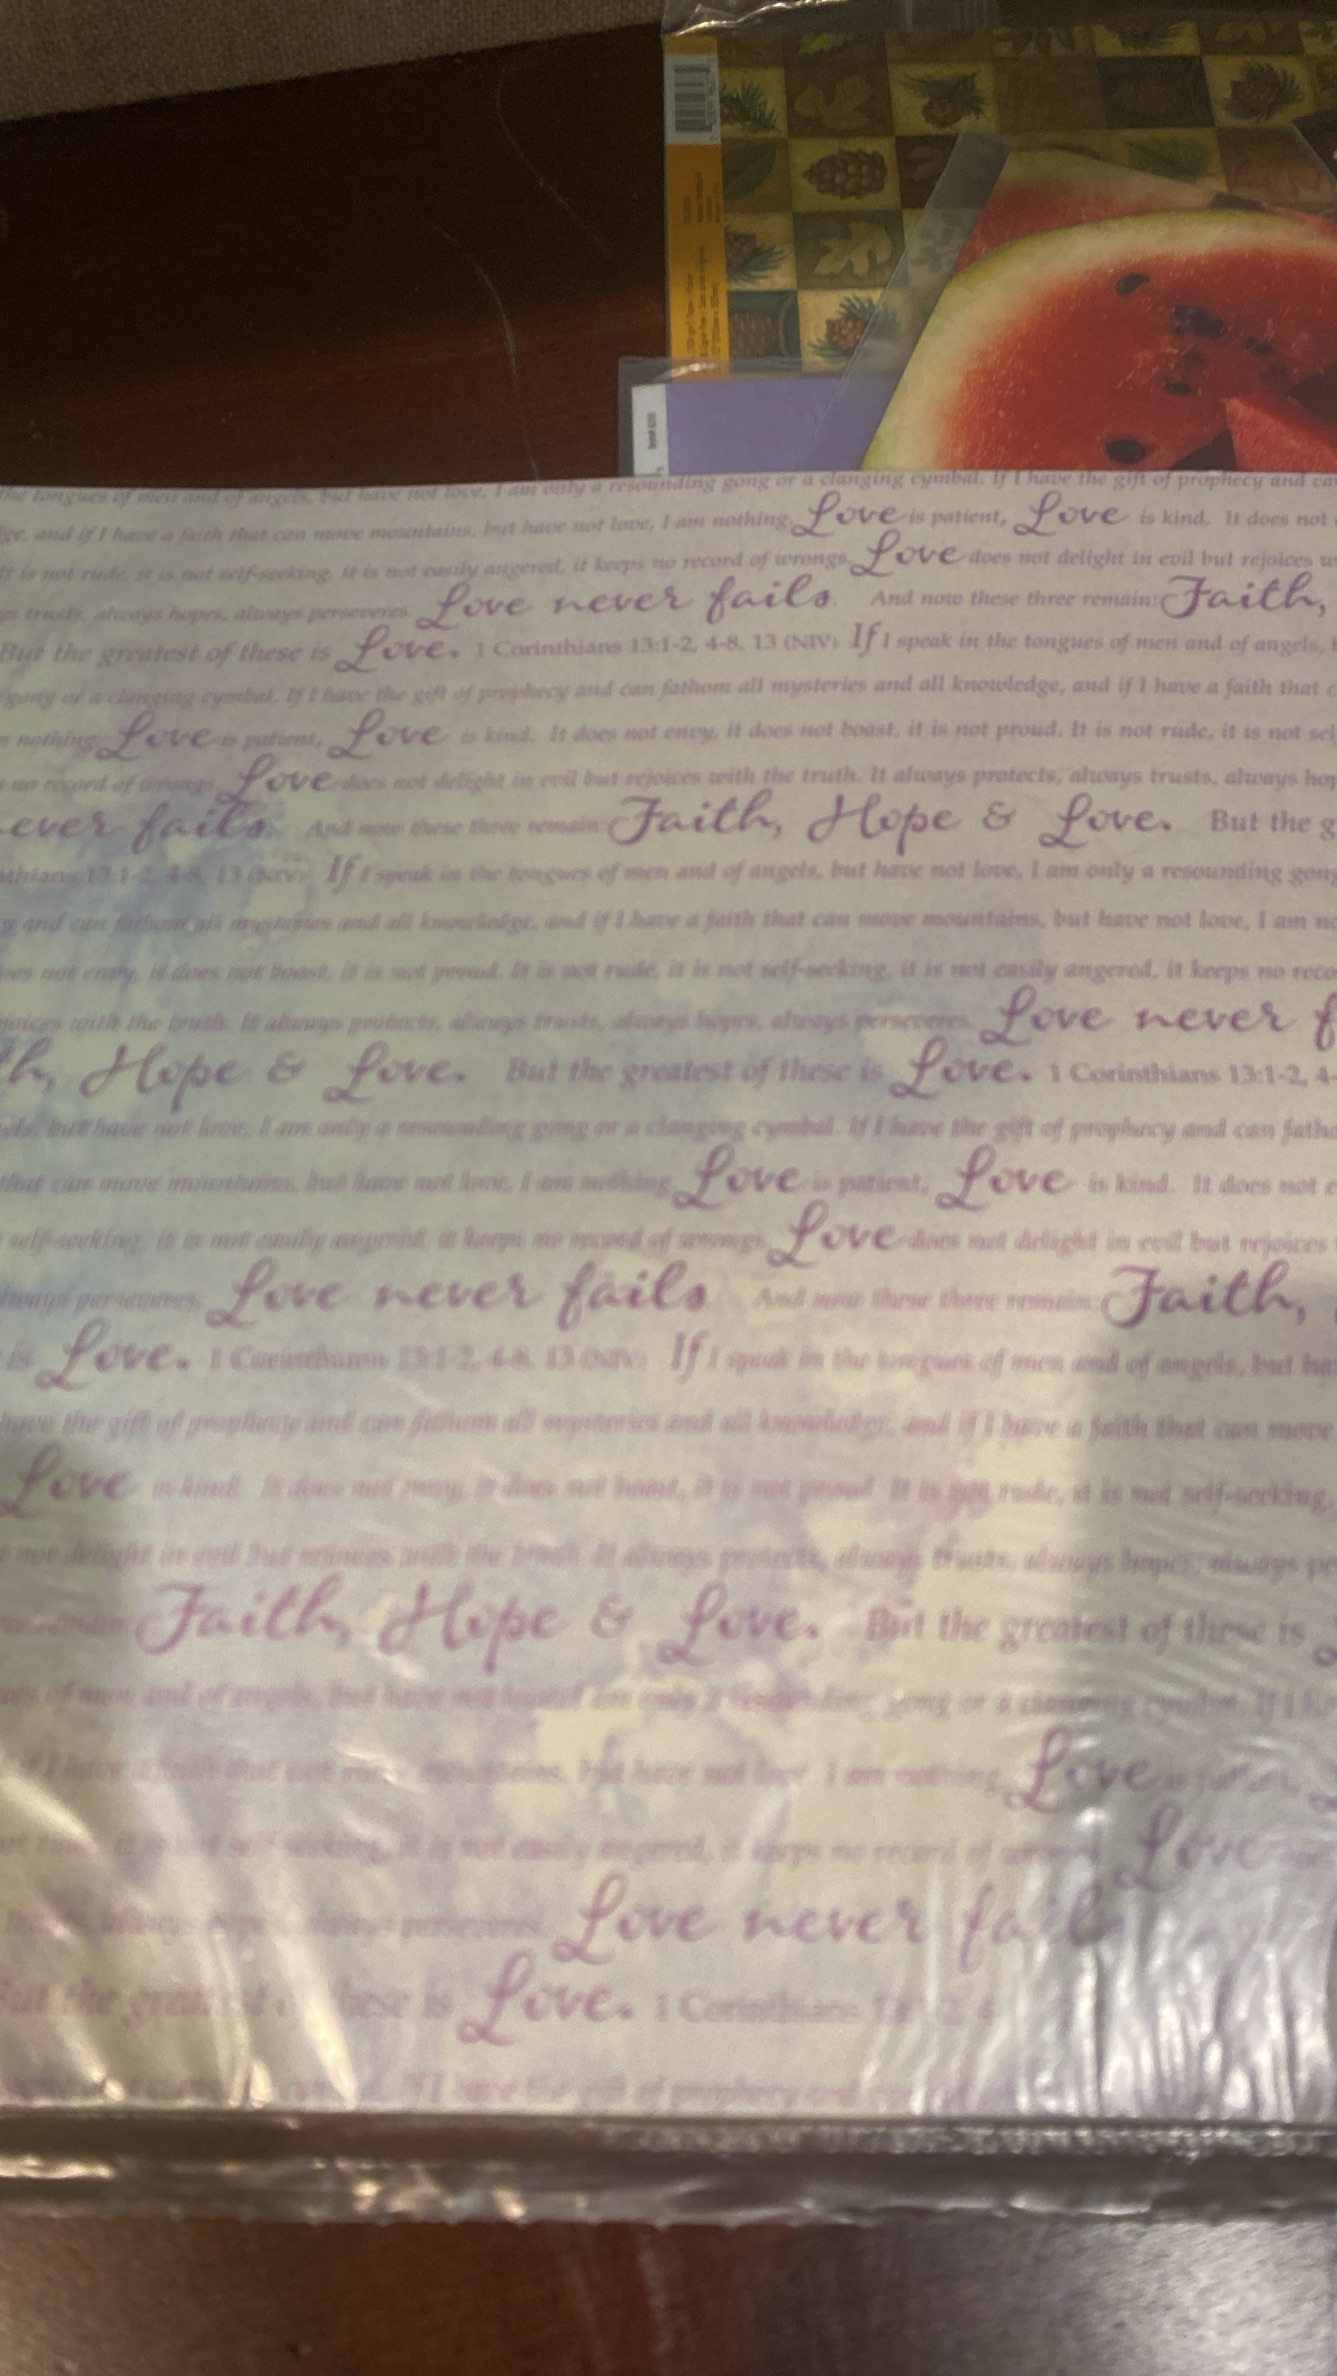 the tongues of men and of angels, but have not love, I am only a resounding gong or a clanging cymbal. If I have the gift of prophecy and
and if I have a faith that can move mountains, but have not love, I am nothing. Love is patient, Love is kind. It does not
It is not rude, it is not self-seeking, it is not easily angered, it keeps no record of wrongs. Love does not delight in evil but rejoices
trusts, always hopes, always perseveres. Love never fails. And now these three remain: Faith,
But the greatest of these is Love. 1 Corinthians 13:1-2, 4-8, 13 (NIV) If I speak in the tongues of men and of angels,
gong or a clanging cymbal. If I have the gift of prophecy and can fathom all mysteries and all knowledge, and if I have a faith that
nothing. Love is patient, Love is kind. It does not envy, it does not boast, it is not proud. It is not rude, it is not
no record of wrongs. Love does not delight in evil but rejoices with the truth. It always protects, always trusts, always
ever fails. And now these three remain: Faith, Hope & Love. But the g
thians 13:1-2, 4-8, 13 (NIV) If I speak in the tongues of men and of angels, but have not love, I am only a resounding gong
and can fathom all mysteries and all knowledge, and if I have a faith that can move mountains, but have not love, I am
oes not envy, it does not boast, it is not proud. It is not rude, it is not self-seeking, it is not easily angered, it keeps no reco
joices with the truth. It always protects, always trusts, always hopes, always perseveres. Love never f
th, Hope & Love. But the greatest of these is Love. 1 Corinthians 13:1-2, 4-
els, but have not love, I am only a resounding gong or a clanging cymbal. If I have the gift of prophecy and can fatho
that can move mountains, but have not love, I am nothing. Love is patient, Love is kind. It does not
self-seeking, it is not easily angered, it keeps no record of wrongs. Love does not delight in evil but rejoices
always perseveres. Love never fails And now these three remain: Faith,
is Love. 1 Corinthians 13:1-2, 4-8, 13 (NIV) If I speak in the tongues of men and of angels, but ha
have the gift of prophecy and can fathom all mysteries and all knowledge, and if I have a faith that can move
Love is kind. It does not envy, it does not boast, it is not proud. It is not rude, it is not self-seeking,
not delight in evil but rejoices with the truth. It always protects, always trusts, always hopes, always pe
Faith, Hope & Love. But the greatest of these is
ues of men and of angels, but have not love, I am only a resounding gong or a clanging cymbal. If I h
I have a faith that can move mountains, but have not love, I am nothing. Love is patient,
self-seeking, it is not easily angered, it keeps no record of Love
always perseveres. Love never fail
But the greatest of these is Love. 1 Corinthians
I have the gift of prophecy and